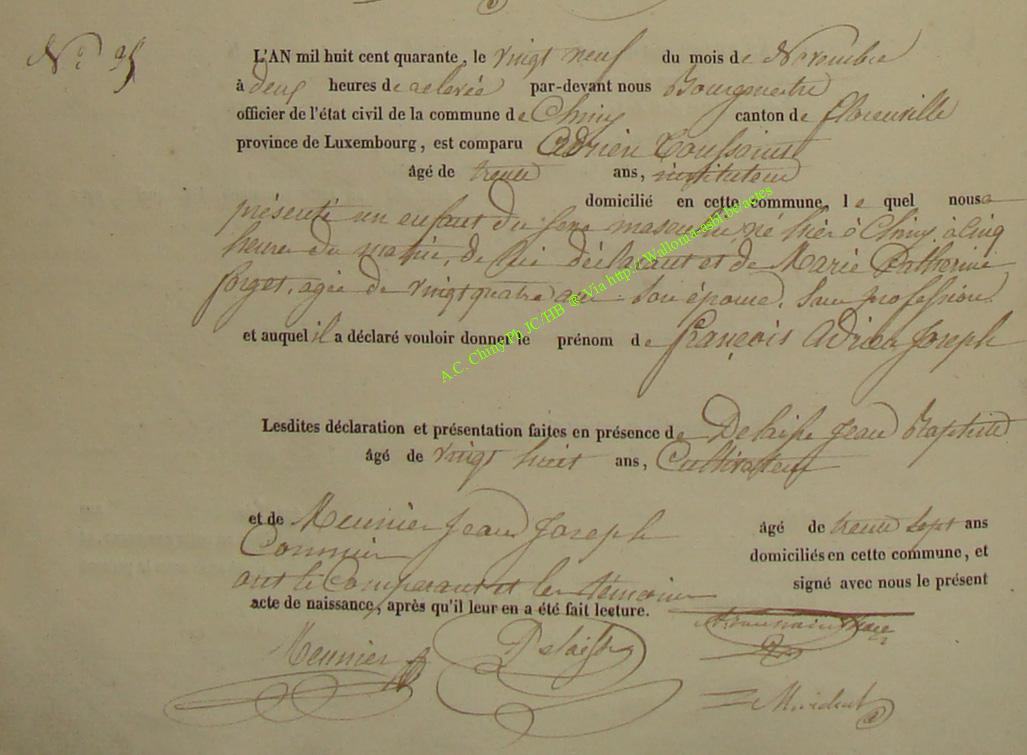 N° 25
L'AN mil huit cent quarante, le vingt neuf du mois de Novembre
à deux heures de relevée par-devant nous Bourgmestre
officier de l'état civil de la commune de Chiny canton de florenville
province de Luxembourg, est comparu Adrien Toussaint
âgé de trente ans, instituteur
domicilié en cette commune, le quel nous a
présenté un enfant du sexe masculin, né hier à Chiny, à cinq
heure du matin, de lui déclarant et de Marie Catherine
forget, agée de vingt quatre ans son épouse, sans profession
et auquel il a déclaré vouloir donner le prénom de françois Adrien Joseph
Lesdites déclaration et présentation faites en présence de Delaisse Jean Baptiste
âgé de vingt huit ans, Cultivateur
et de Meunier Jean Joseph âgé de trente sept ans
domiciliés en cette commune, et
ont le Comparant et les témoins signé avec nous le présent
acte de naissance, après qu'il leur en a été fait lecture.
Meunier
A.C. Chiny Ph JC/HB @ Via http://Wallonia-asbl.be/actes